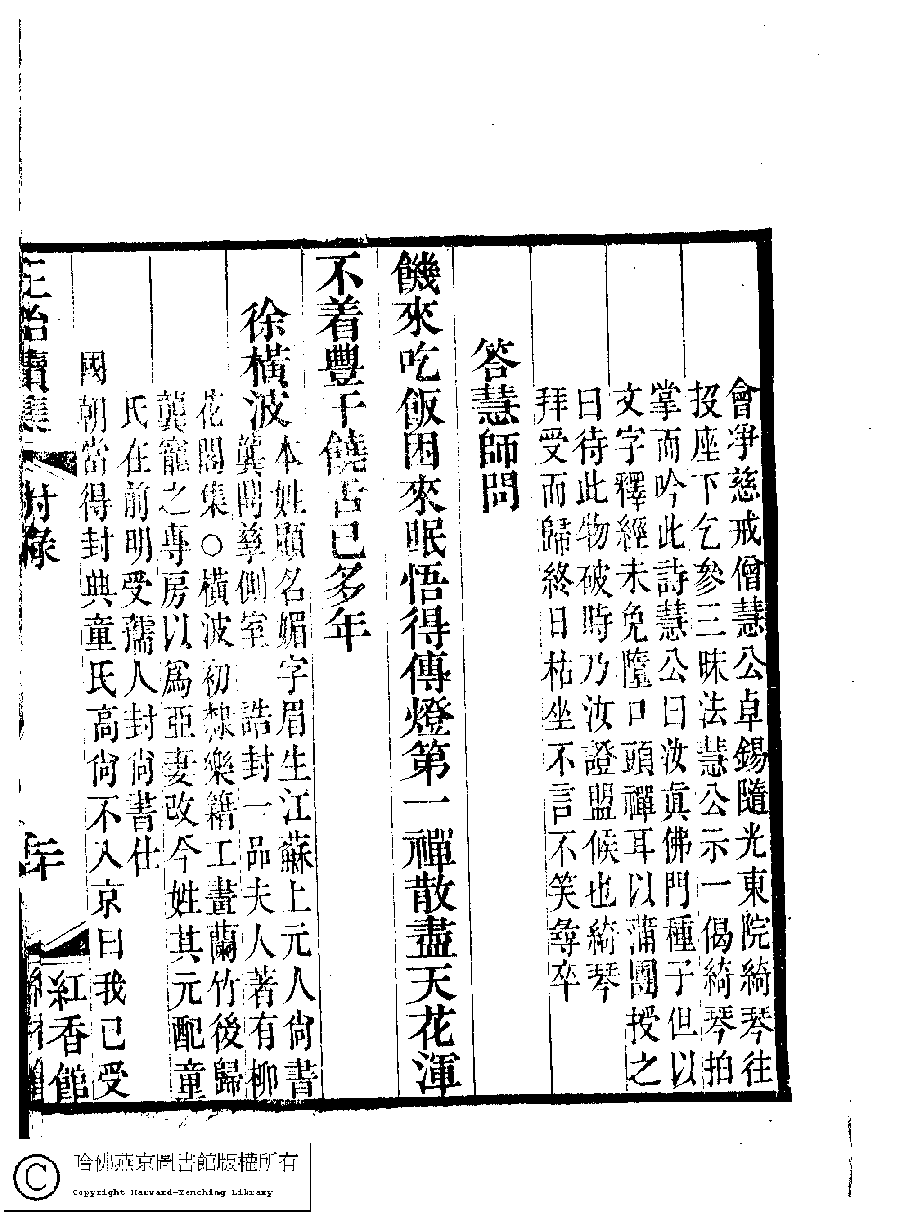 會淨慈戒僧慧公卓錫隨光東院綺琴往
投座下乞參三昧法慧公示一偈綺琴拍
掌而吟此詩慧公曰汝眞佛門種子但以
文字釋經未免墮口頭禪耳以蒲團授之
曰待此物破時乃汝證盟候也綺琴
拜受而歸終日枯坐不言不笑尋卒
答慧師問
饑來吃飯困來眠悟得傳燈第一禪散盡天花渾
不着豐干饒舌已多年
徐橫波
本姓顧名媚字眉生江蘇上元人尙書
龔鬪孳側室 誥封一品夫人著有柳
花閣集○橫波初隸樂籍工畫蘭竹後歸
龔寵之專房以爲亞妻改今姓其元配童
氏在前明受孺人封尙書仕
國朝當得封典童氏高尙不入京曰我已受
正始續集 附錄 二十 紅香館
哈佛燕京圖書館版權所有
Copyright Harvard-Yenching Library